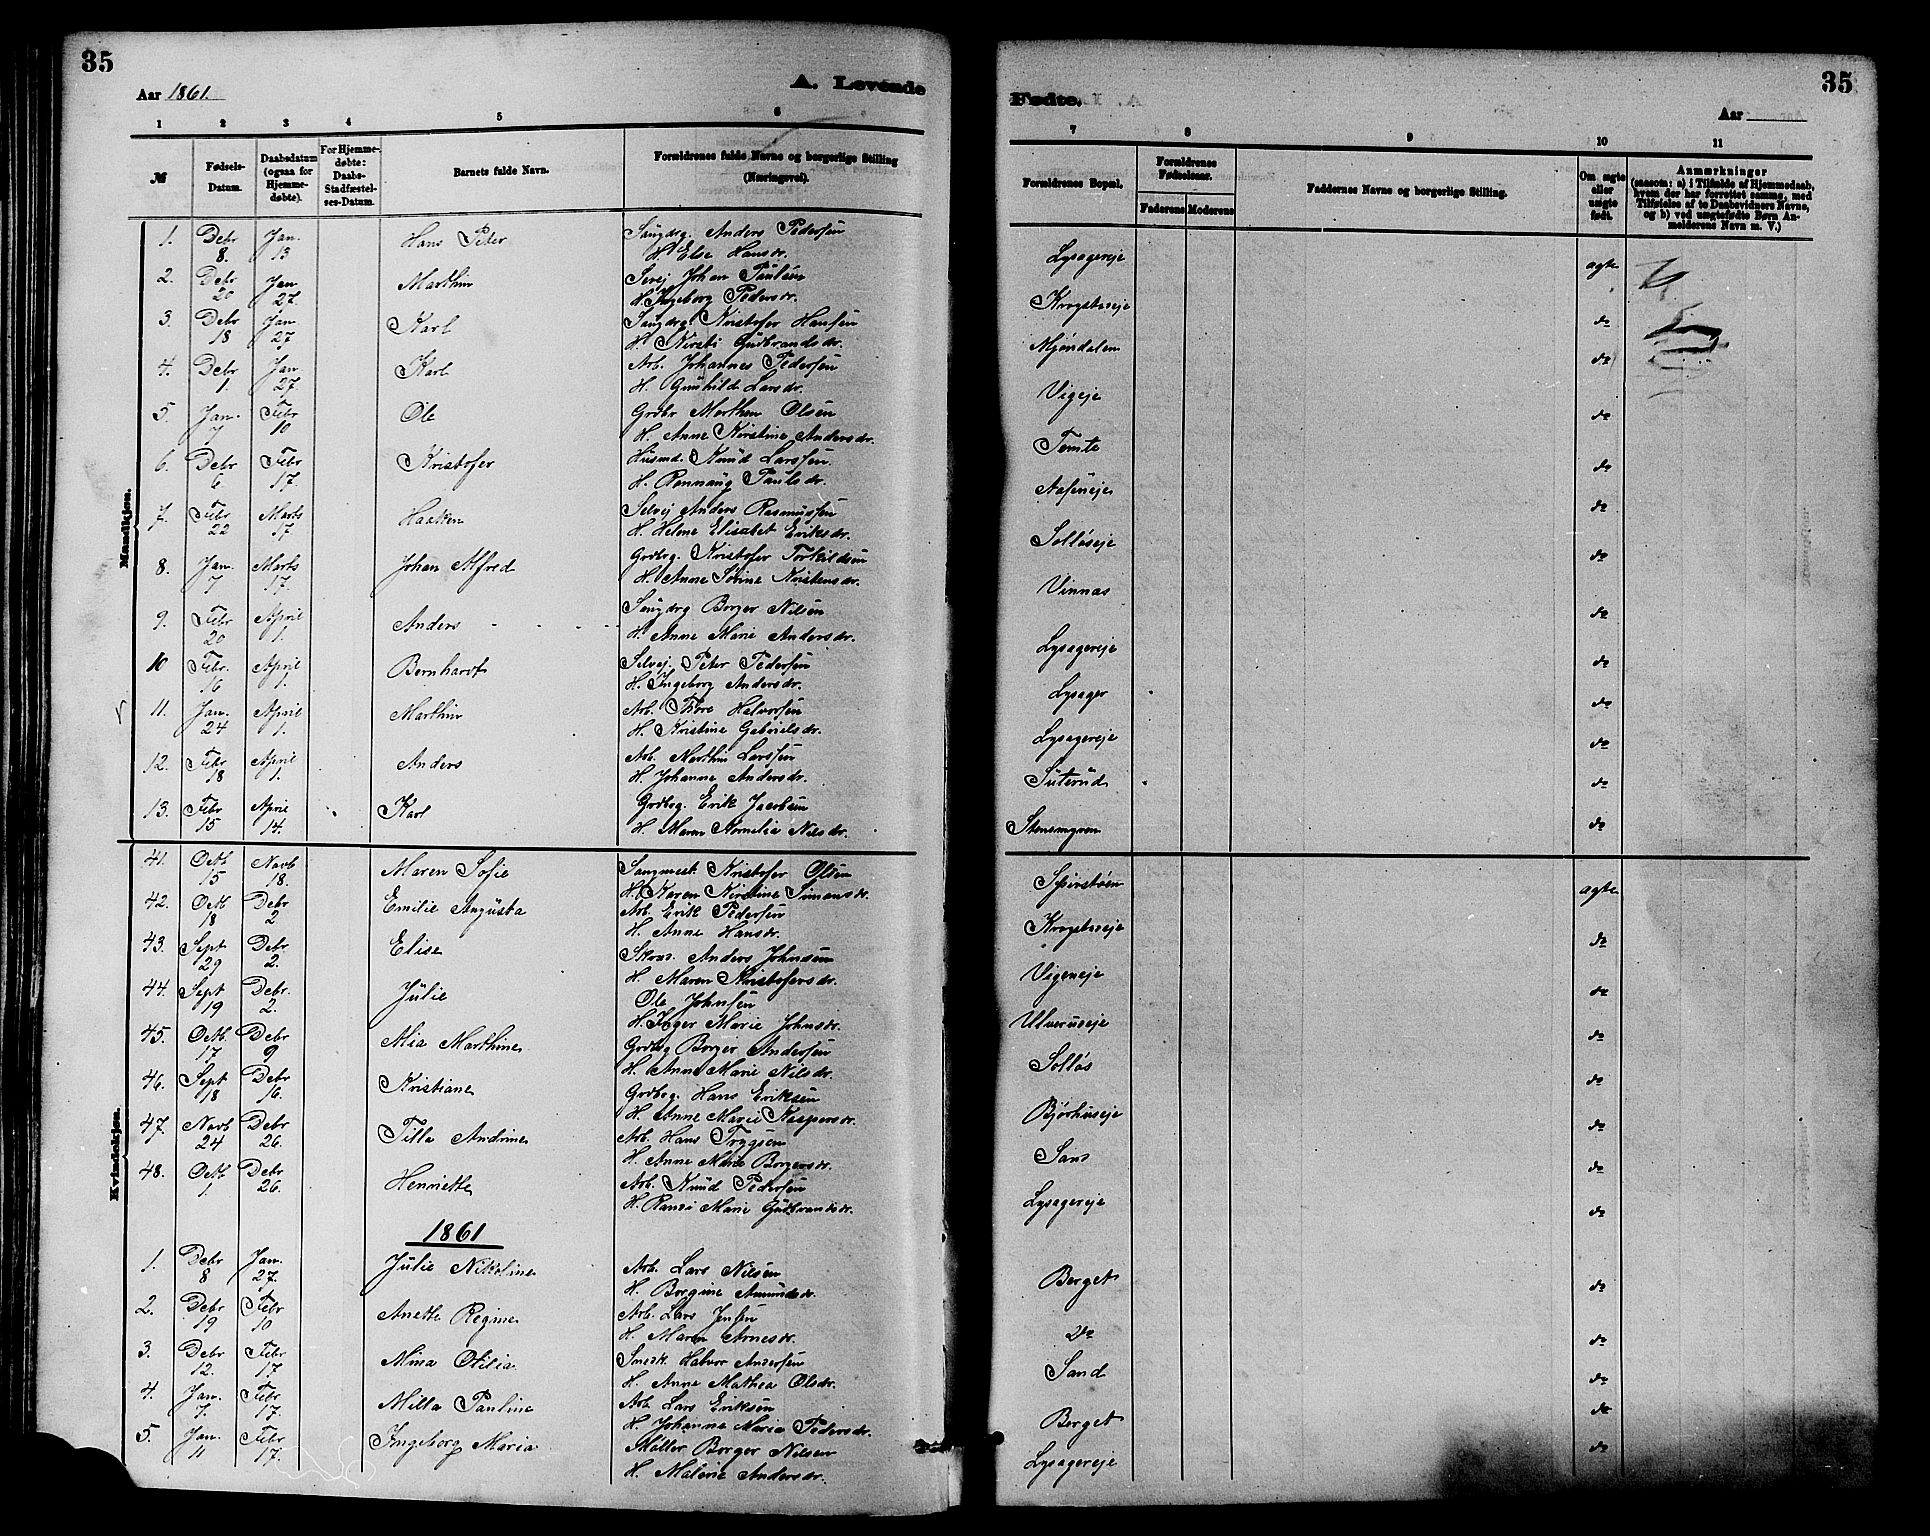 35
Aar 1861.
A. Levende
1 2 3 4 5 6
№ Fødsels-Datum. Daabsdatum (ogsaa for Hjemmedøbte). For Hjemmedøbte: Daabs-Stadfæstelses-Datum. Barnets fulde Navn. Forældrenes fulde Navne og borgerlige Stilling (Næringsvei).
Mandkjøn.
1. Debr 8. Jan. 13 Hans Peter Saugdrg. Anders Pedersen
H. Else Hansdr.
2. Debr 20 Jan 27. Marthin Selvej Johan Paulsen
H. Ingeborg Pedersdr.
3. Debr 18 Jan 27 Karl Saugdrg. Kristofer Hansen
H. Kirsti Gudbrandsdr.
4. Debr 1 Jan 27 Karl Arb. Johannes Pedersen
H. Gunhild Larsdr.
5. Jan. 7 Febr 10 Ole Grdbr Morthen Olsen
H. Anne Kirstine Andersdr.
6. Debr 6 Febr 17. Kristofer Husmd. Knud Larssen
H. Rønnaug Paulsdr.
7. Febr 22 Marts 17 Haaken Selvej Anders Rasmussen
H. Helene Elisabet Eriksdr.
8. Jan. 7 Marts 17. Johan Alfred Grdbrg. Kristofer Torkildsen
H. Anne Sørine Kristensdr.
9. Febr 20 April 1. Anders Saugdrg Borger Nilsen
H. Anne Marie Andersdr.
10 Febr. 16 April 1. Bernhardt Selvej. Peter Pedersen
H. Ingeborg Andersdr.
11. Jan. 24 April 1. Marthin Arb. Thore Halvorsen
H. Kristine Gabrielsdr.
12. Febr 18 April 1. Anders Arb. Marthin Larssen
H. Johanne Andersdr.
13. Febr 15 April 14. Karl Grdbog. Erik Jacobsen
H. Maren Kornelia Nilsdr.
Kvindekjøn.
41. Oktb 15 Novb 18. Maren Sofie Saugmest. Kristofer Olsen
H. Karen Kirstine Simensdr.
42. Oktb 18 Debr 2 Emilie Augusta Arb. Erik Pedersen
H. Anne Hansdr.
43. Sept 29 Debr 2. Elise Skræd. Anders Johnsen
H. Maren Kristofersdr.
44. Sept 19 Debr. 2. Julie Ole Johnsen
H. Inger Marie Johnsdr.
45. Oktb. 17 Debr 9 Mia Marthine Grdbg Borger Andersen
H. Anne Marie Nilsdr.
46. Sept 18 Debr 16. Kristiane Grdbog. Hans Eriksen
H. Anne Marie Kaspersdr.
47. Novb 24 Debr 26. Tilla Andrine Arb. Hans Trygsen
H. Anne Marie Borgersdr.
48. Oktb 1. Debr 26. Henriette Arb. Knud Pedersen
H. Randi Marie Gudbrandsdr.
1861
1. Debr 8 Jan. 27. Julie Nikoline Arb. Lars Nilsen
H. Borgine Amundsdr.
2. Debr 19 Febr 10 Anette Regine Arb. Lars Jensen
H. Maren Arnesdr.
3. Debr 12. Febr 17. Mina Otilia Smedk. Halvor Andersen
H. Anne Mathea Olsdr.
4. Jan. 7. Febr 17. Milla Pauline Arb. Lars Eriksen
H. Johanna Maria Pedersdr.
5. Jan. 11 Febr 17. Ingeborg Maria Møller Borger Nilsen
H. Malene Andersdr.
Fødte.
35
Aar
7 8 9 10 11
Forældrenes Bopæl. Forældrenes Fødselsaar. Faderens Moderens Faddernes Navne og borgerlige Stilling. Om ægte eller uægte født. Anmærkninger (saasom: a) i Tilfælde af Hjemmedaab, hvem der har forrettet samme, med Tilføielse af to Daabsvidners Navne, og b) ved uægtefødte Børn Anmelderens Navn m. V.)
Lysagereje ægte
Krogstuseje do
Mjøndalen do
Vigeje do
Tomte do
Aaseneje do
Solløseje do
Vinnas do
Lysagereje do
Lysager do
Lysagereje do
Suterud do
Stensmyren do
Spirstøen ægte
Krogstuseje do
Vigeneje do
Ulveruseje do
Solløs do
Bjørhuseje do
Sans do
Lysagereje do
Berget do
do do
Sand do
Berget do
Lysagereje do